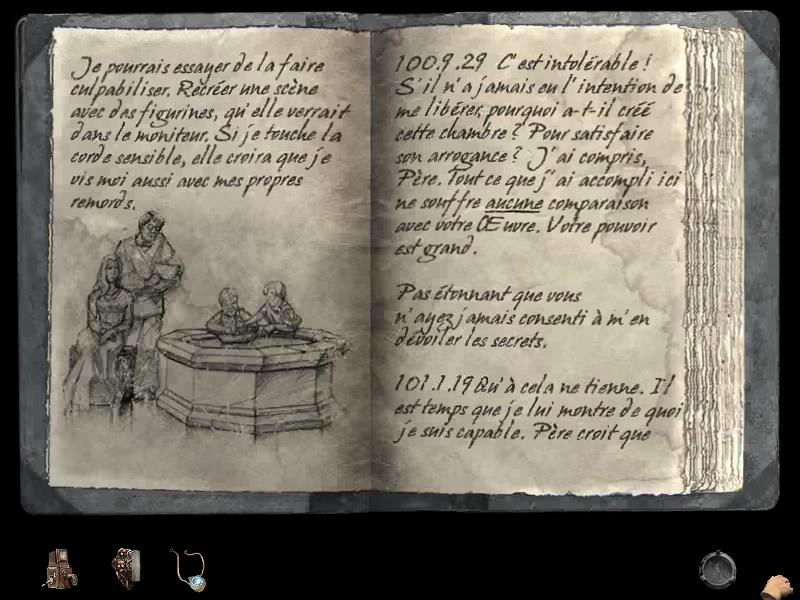 Je pourrais essayer de la faire
culpabiliser. Recréer une scène
avec des figurines, qu'elle verrait
dans le moniteur. Si je touche la
corde sensible, elle croira que je
vis moi aussi avec mes propres
remords.
100.9.29 C'est intolérable !
S'il n'a jamais eu l'intention de
me libérer, pourquoi a-t-il créé
cette chambre ? Pour satisfaire
son arrogance ? J'ai compris,
Père. Tout ce que j'ai accompli ici
ne souffre aucune comparaison
avec votre Œuvre. Votre pouvoir
est grand.
Pas étonnant que vous
n'ayez jamais consenti à m'en
dévoiler les secrets.
101.1.19 Qu'à cela ne tienne. Il
est temps que je lui montre de quoi
je suis capable. Père croit que